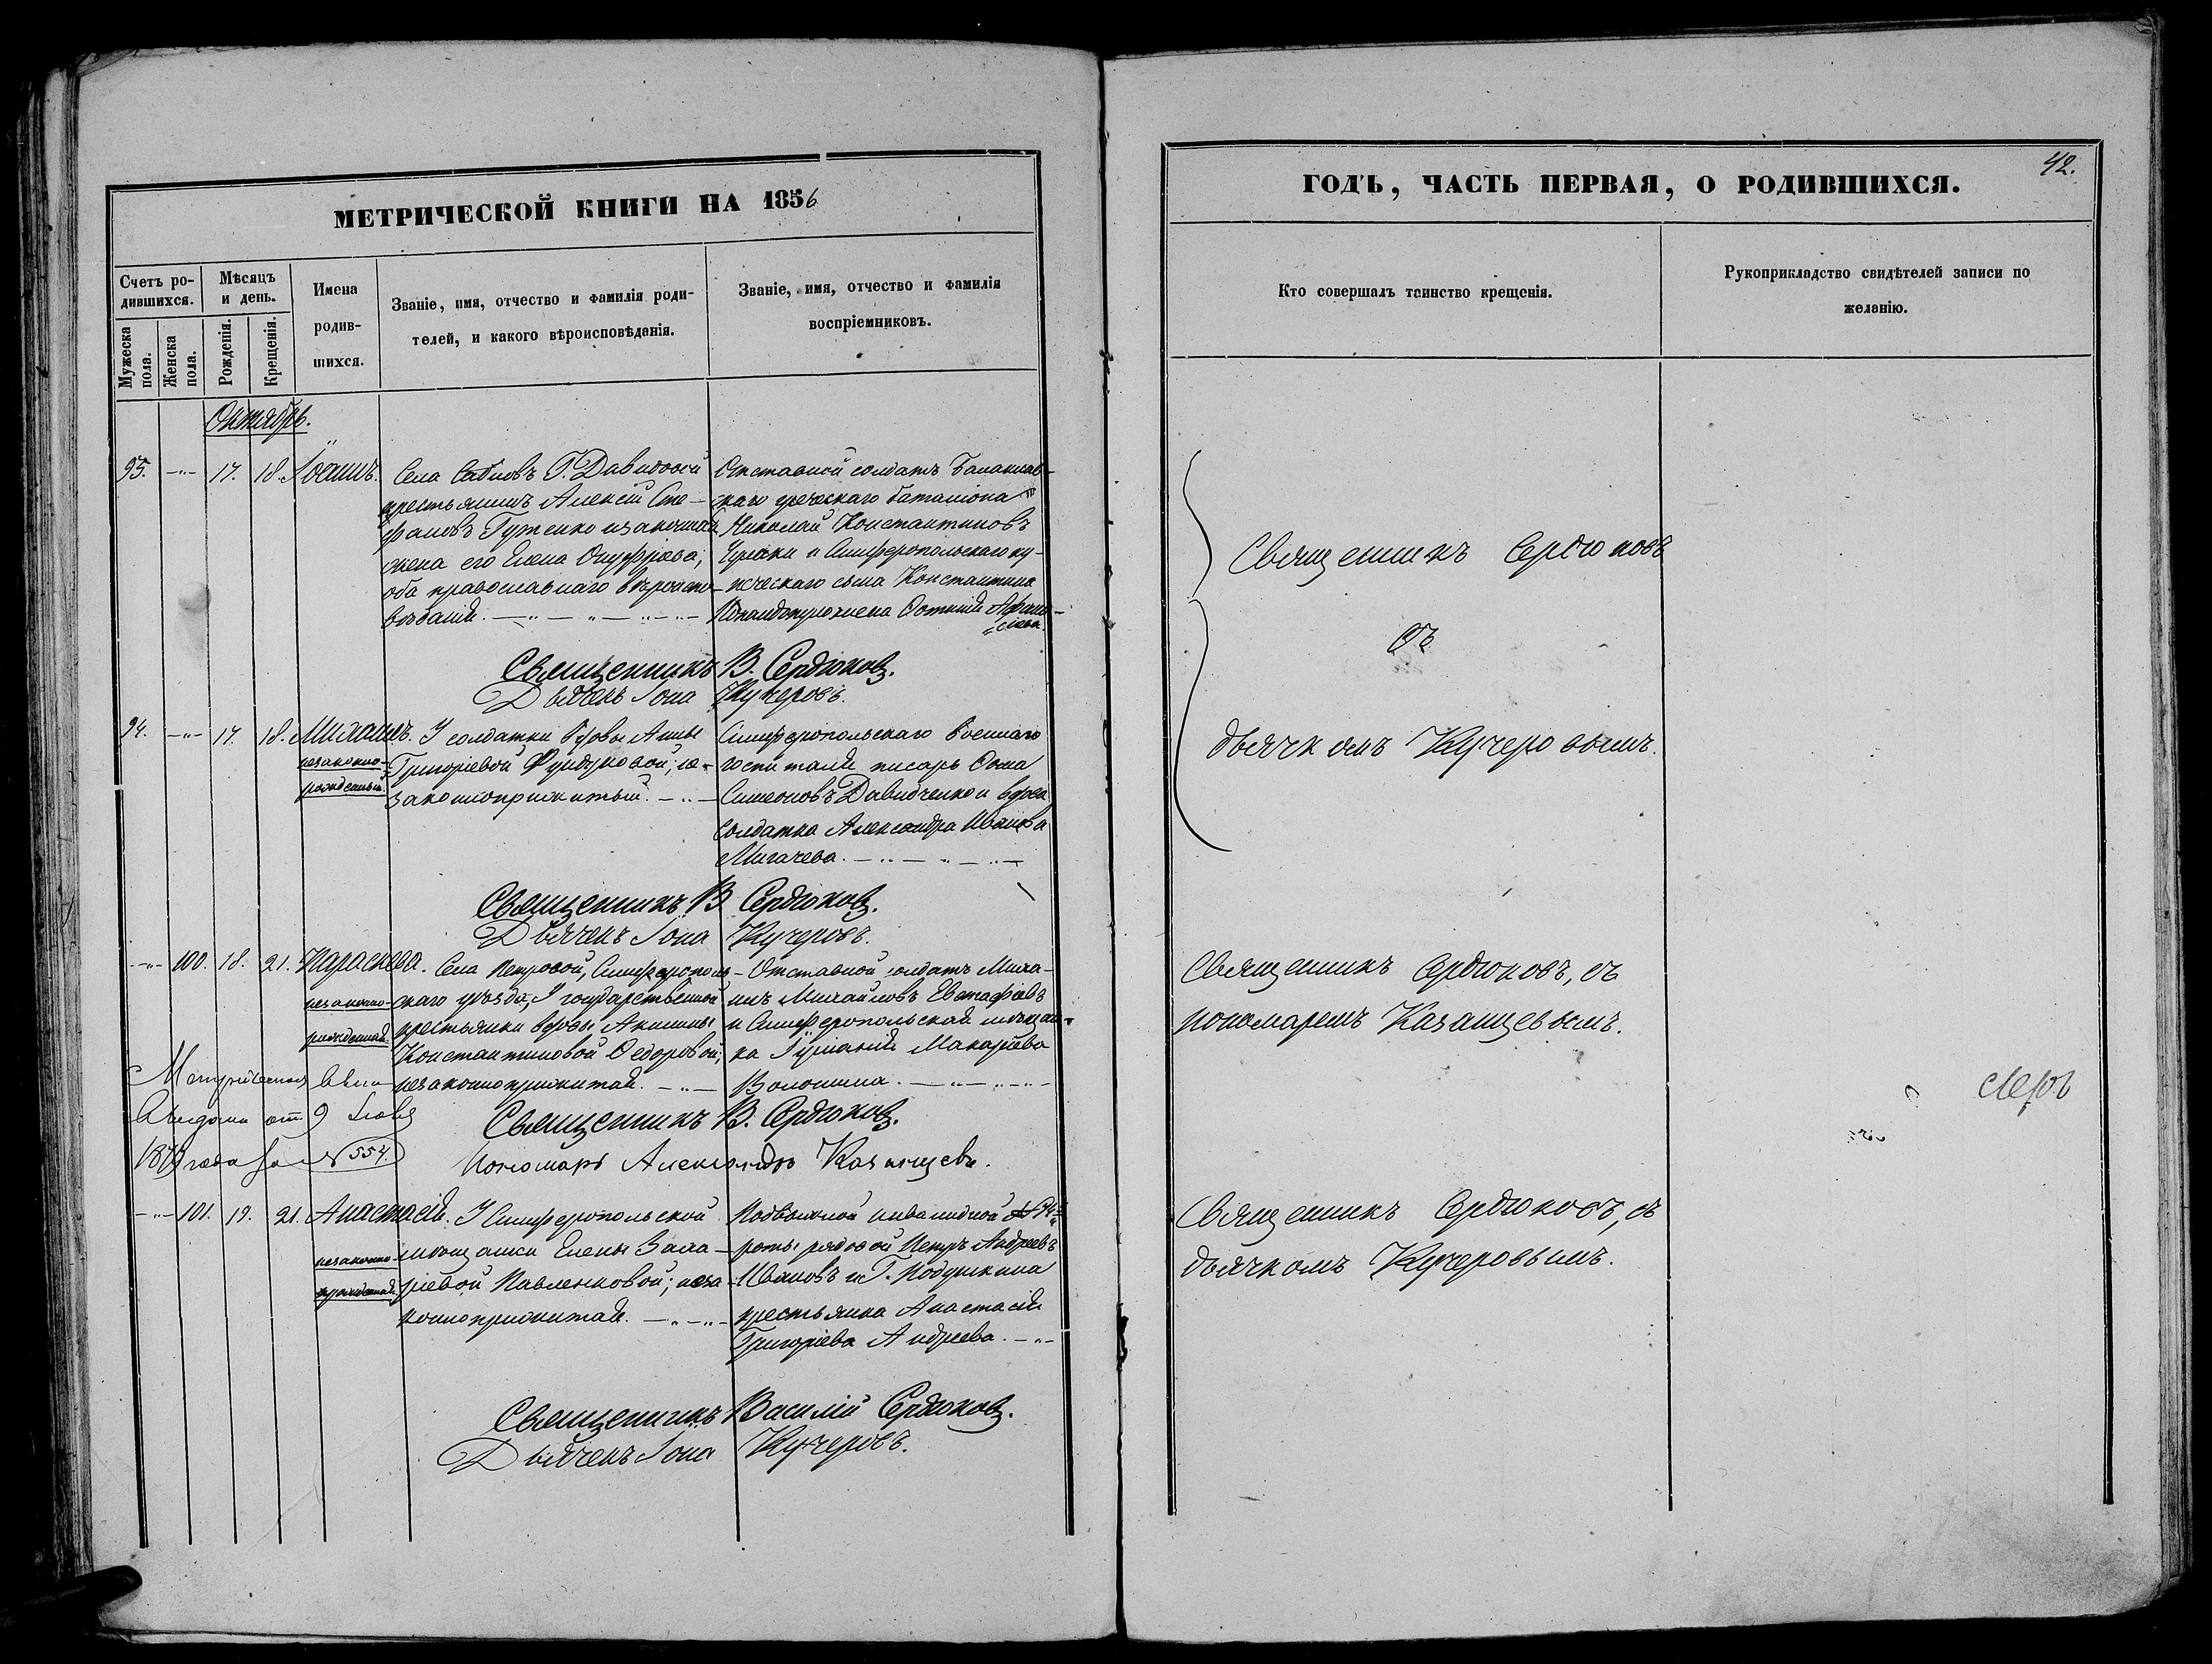 МЕТРИЧЕСКОЙ КНИГИ НА 1856
Счетъ ро-
дившихся.
Мужеска
пола.
Женска
пола.
Мѣсяцъ
и день.
Рожденія.
Крещенія.
Имена
родив-
шихся.
Званіе, имя, отчество и фамилія роди-
телей, и какого вѣроисповѣданія.
Званіе, имя, отчество и фамилія
воспріемниковъ.
Октябрь.
93. 17. 18. Іоаннъ.
Села Сабловъ Г. Давидовой
крестьянинъ Алексій Сте-
фановъ Гуженко и законная
жена его Елена Онуфріева;
оба православнаго вѣроиспо-
вѣданія.
Отставной солдатъ Балаклав-
скаго греческаго баталіона
Николай Константиновъ
и Симферопольскаго ку-
печескаго сына Константина
жена Фотинія Афана-
сіева.
Священникъ В. Сердюковъ.
Дьячекъ Іона Кучеровъ.
94. 17. 18. Михаилъ.
незаконно-
рожденный.
У солдатки вдовы Анны
Григоріевой Фундуковой; не-
законноприжитый.
Симферопольскаго военнаго
госпиталя писарь Фома
Симеоновъ Давидченко и вдова
солдатка Александра Иванова
Мигачева.
Священникъ В. Сердюковъ.
Дьячекъ Іона Кучеровъ.
100. 18. 21. Параскева.
незаконно-
рожденная.
Села Петровой, Симферополь-
скаго уѣзда, У государственной
крестьянки вдовы Акилины
Константиновой Федоровой;
незаконноприжитая.
Отставной солдатъ Миха-
илъ Михайловъ Евстафіевъ
и Симферопольская мѣщан-
ка Іуліанія Макаріева
Волошина.
Метрическая
от 9
года за № 554.
Священникъ В. Сердюковъ.
Пономарь Александръ Казанцевъ.
101. 19. 21. Анастасія.
незаконно-
рожденная.
У Симферопольской
мѣщанки Елены Заха-
ріевой Павленковой; неза-
конноприжитая.
Подвижной инвалидной
роты рядовой Петръ Андреевъ
Ивановъ и Г. Подушкина
крестьянка Анастасія
Григоріева Андреева.
Священникъ Василій Сердюковъ.
Дьячекъ Іона Кучеровъ.
42.
ГОДЪ, ЧАСТЬ ПЕРВАЯ, О РОДИВШИХСЯ.
Кто совершалъ таинство крещенія.
Рукоприкладство свидѣтелей записи по
желанію.
Священникъ Сердюковъ
съ
дьячкомъ Кучеровымъ.
Священникъ Сердюковъ, съ
пономаремъ Казанцевымъ.
Священникъ Сердюковъ, съ
дьячкомъ Кучеровымъ.